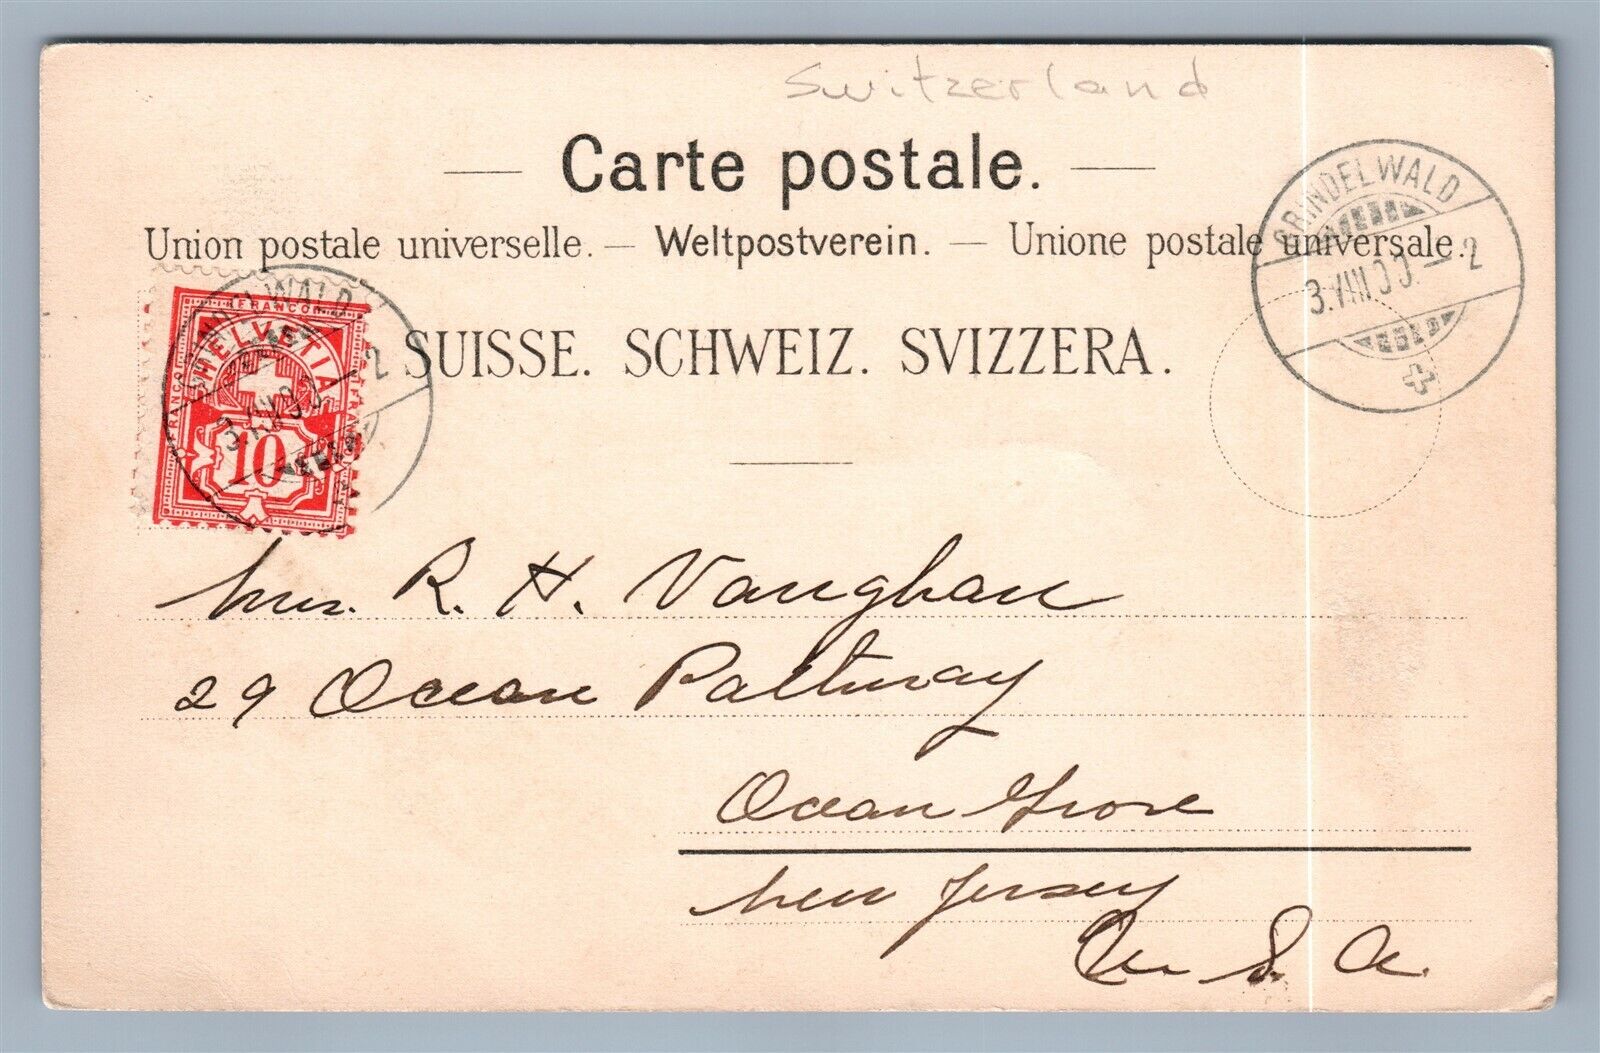 Switzerland
Carte postale.
Union postale universelle. — Weltpostverein. — Unione postale universale.
SUISSE. SCHWEIZ. SVIZZERA.
GRINDELWALD
3.VIII.00.— 2
FRANCO
HELVETIA
FRANCO
FRANCO
10
GRINDELWALD
2
Mrs. R. H. Vaughan
29 Ocean Pathway
Ocean Grove
New Jersey
U. S. A.